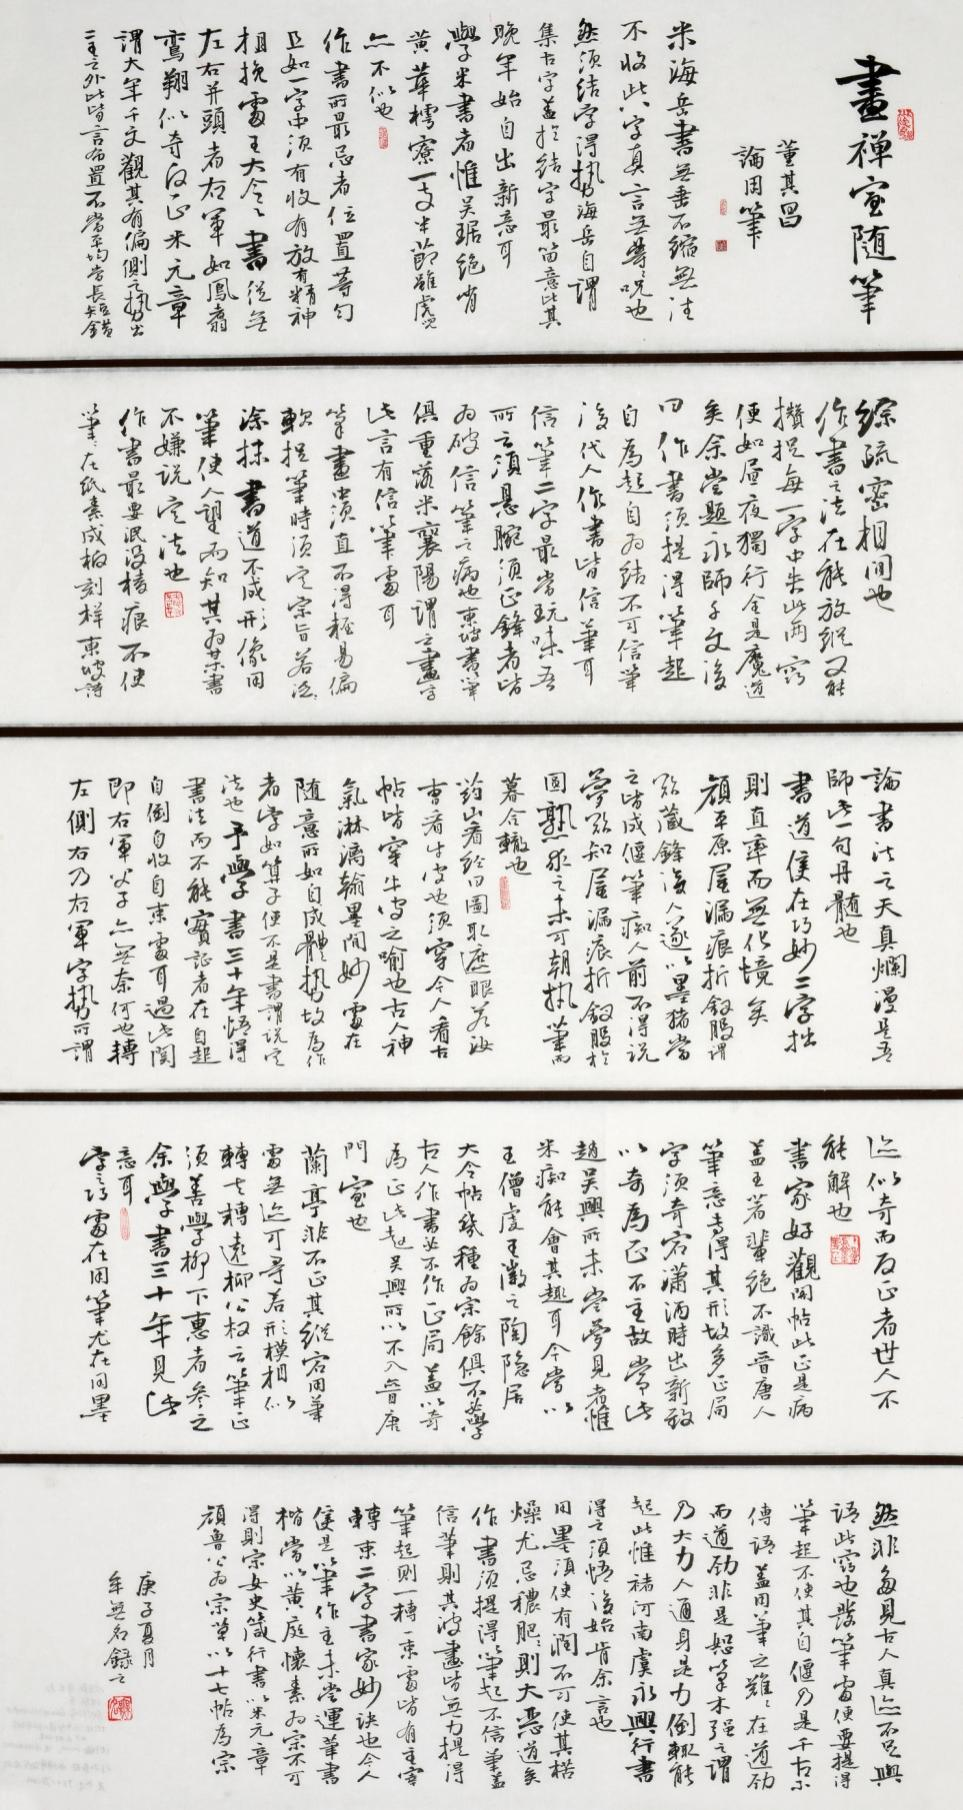 畫禪室随筆
董其昌
論用筆
米海岳書無垂不縮無往
不收此八字真言無等等咒也
然須結字得勢海岳自謂
集古字蓋於結字最留意比其
晚年始自出新意耳
學米書者惟吴琚絶肖
黄華樗寮一支半節雖虎兒
亦不似也
作書所最忌者位置等匀
且如一字中須有收有放有精神
相挽處王大令之書從無
左右并頭者右軍如鳳翥
鸞翔似奇反正米元章
謂大年千文觀其有偏側之勢出
二王之外此皆言布置不當平均當長短錯
綜疏密相間也
作書之法在能放縱又能
攢捉每一字中失此兩竅
便如昼夜獨行全是魔道
矣余嘗題永師千文後
曰作書須提得筆起
自為起自為結不可信筆
後代人作書皆信筆耳
信筆二字最當玩味吾
所云須懸腕須正鋒者皆
為破信筆之病也東坡書筆
俱重落米襄陽謂之畫字
此言有信筆處耳
筆畫中須直不得輕易偏
軟捉筆時須定宗旨若泛泛
涂抹書道不成形像用
筆使人望而知其為某書
不嫌説定法也
作書最要泯没棱痕不使
筆筆在紙素成板刻样東坡詩
論書法云天真爛漫是吾
師此一句丹髓也
書道只在巧妙二字拙
則直率而無化境矣
顔平原屋漏痕折釵股謂
欲藏鋒後人遂以墨猪當
之皆成偃筆痴人前不得説
夢欲知屋漏痕折釵股於
圆熟求之未可朝執筆而
暮合轍也
药山看經曰圖取遮眼若汝
曹看牛皮也須穿今人看古
帖皆穿牛皮之喻也古人神
氣淋漓翰墨間妙處在
随意所如自成體勢故為作
者字如算子便不是書謂説定
法也予學書三十年悟得
書法而不能實証者在自起
自倒自收自束處耳過此關
即右軍父子亦無奈何也轉
左側右乃右軍字勢所謂
迹似奇而反正者世人不
能解也
書家好觀閣帖此正是病
蓋王著輩絶不識晋唐人
筆意專得其形故多正局
字須奇宕瀟洒時出新致
以奇為正不主故常此
趙吴興所未嘗夢見者惟
米痴能會其趣耳今當以
王僧虔王徽之陶隐居
大令帖幾種為宗餘俱不必學
古人作書必不作正局蓋以奇
為正此趙吴興所以不入晋唐
門室也
蘭亭非不正其縱宕用筆
處無迹可尋若形模相似
轉去轉遠柳公权云筆正
須善學柳下惠者參之
余學書三十年見此
意耳
字之巧處在用筆尤在用墨
然非多見古人真迹不足與
語此竅也發筆處便要提得
筆起不使其自偃乃是千古不
傳語蓋用筆之難難在遒劲
而遒劲非是怒筆木强之謂
乃大力人通身是力倒輒能
起此惟褚河南虞永興行書
得之須悟後始肯余言也
用墨須使有潤不可使其枯
燥尤忌穠肥肥則大惡道矣
作書須提得筆起不信筆蓋
信筆則其波畫皆無力提得
筆起則一轉一束處皆有主宰
轉束二字書家妙訣也今人
只是筆作主未嘗運筆書
楷當以黄庭懷素為宗不可
得則宗女史箴行書以米元章
顔魯公為宗草以十七帖為宗
庚子夏月
牟無名録之